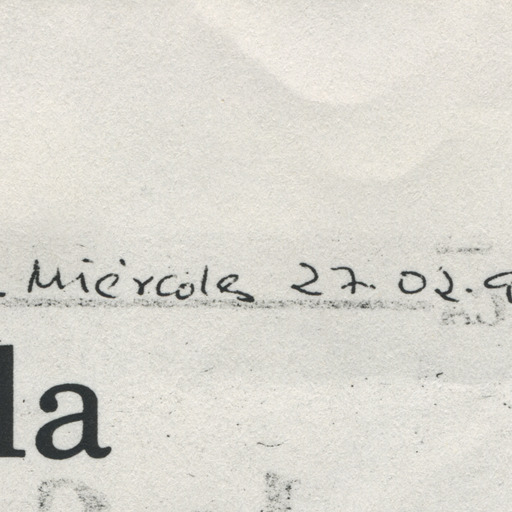 . Miércoles 27.02.9
la